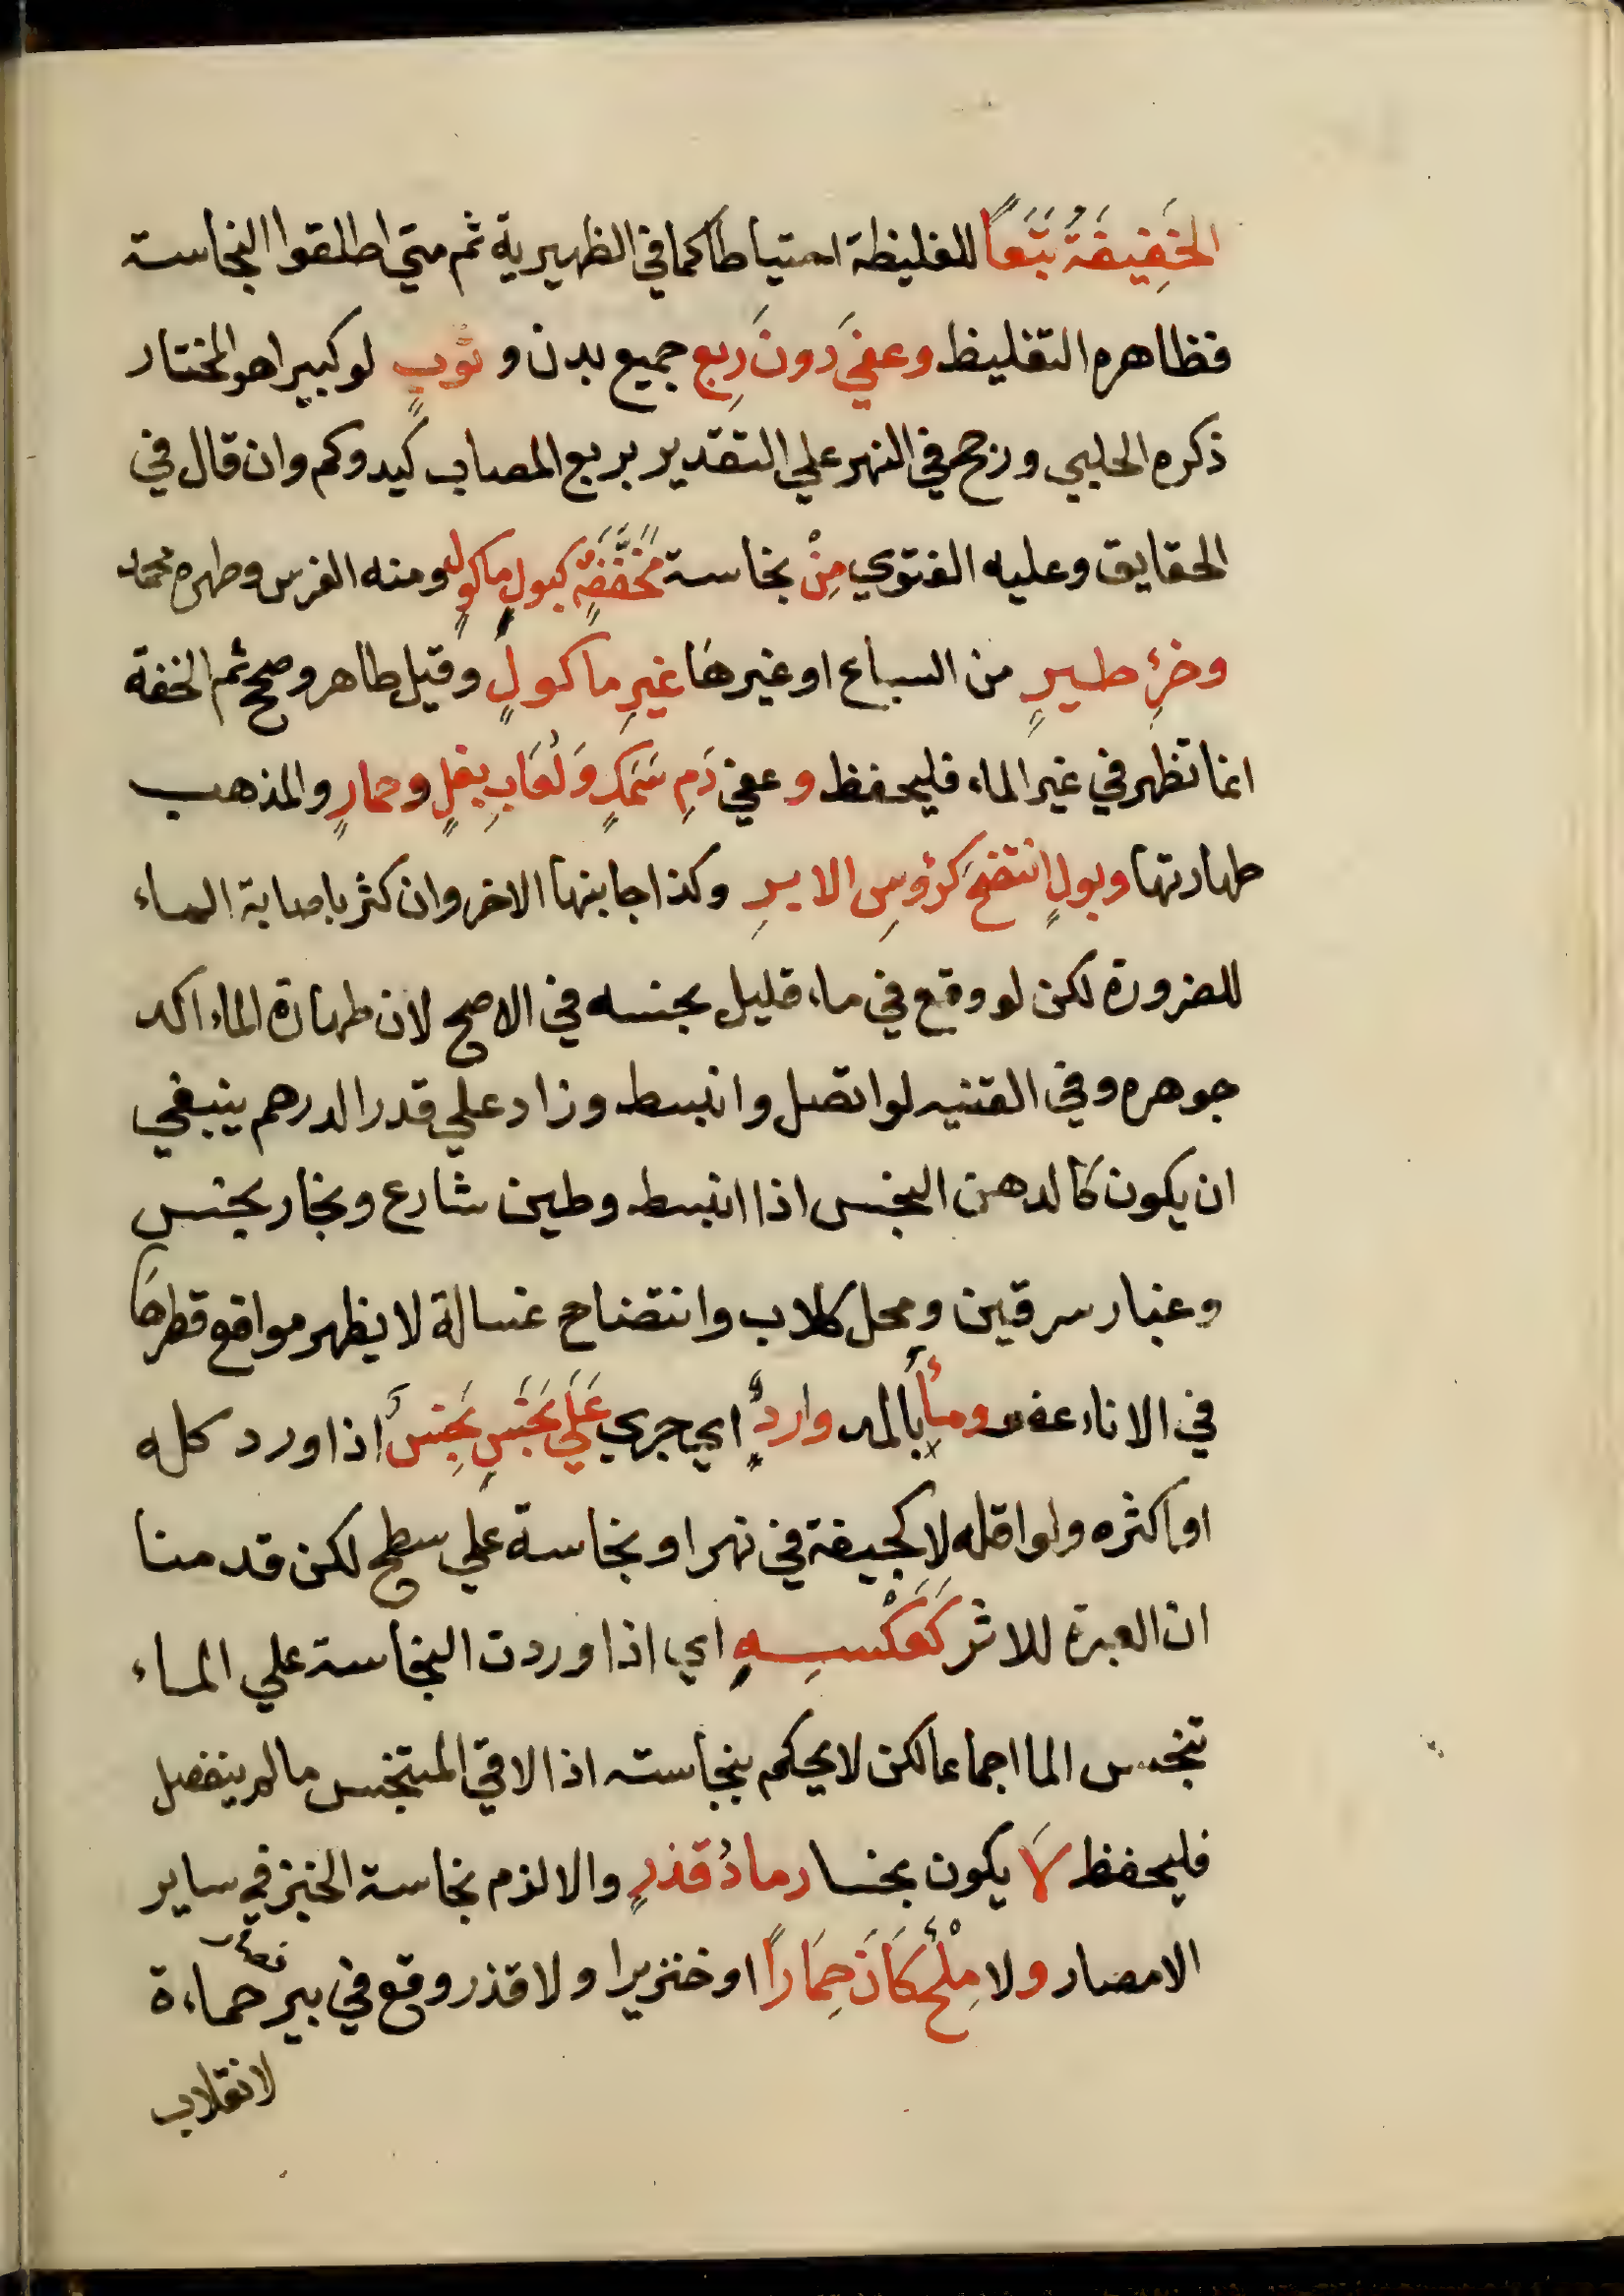 الخَفِيفَةُ تَبَعاً للغليظة احتياطا كما في الظهيرية ثم متي اطلقوا النجاسة
فظاهره التغليظ وعفي دونَ رِبع جميع بدن و ثوبٍ لو كبيرا هو المختار
ذكره الحلبي ورجحه في النهر علي التقدير بربع المصاب كيد وكم وان قال في
الحقايق وعليه الفتوي مِنْ نجاسة مُخَفَّفَةٍ كبولِ ماكولٍ ومنه الفرس وطهره محمد
وخرءِ طيرٍ من السباع او غيرها غيرِ ماكولٍ وقيل طاهر وصحح ثم الخفة
انما تظهر في غير الماء فليحفظ وعفي دَمِ سَمَكٍ وَلُعَابِ بغلٍ وحمارٍ والمذهب
طهارتها وبولٍ انتضحَ كرؤسِ الابرِ وكذا جانبها الاخر وان كثر باصابة الماء
للضرورة لكن لو وقع في ماء قليل نجسه في الاصح لان طهارة الماء اكد
جوهره وفي القنيه لو اتصل وانبسط وزاد علي قدر الدرهم ينبغي
ان يكون كالدهن النجس اذا انبسط وطين شارع وبخار نجس
وغبار سرقين ومحل كلاب وانتضاح غسالة لا يظهر مواقع قطرها
في الاناء عفو وماء بالمد واردٌ اي جري عَلَي نَجَسٍ نَجِسٌ اذا ورد كله
او اكثره ولو اقله لا كجيفة في نهر او نجاسة علي سطح لكن قدمنا
ان العبرة للاثر كَعَكْسِهِ اي اذا وردت النجاسة علي الماء
تنجس الما اجماعا لكن لا يحكم بنجاسته اذا لاقي المتنجس مالم ينفصل
فليحفظ لَا يكون نجسا رمادُ قذرٍ والا لزم نجاسة الخبز في ساير
الامصار ولا مِلْحٌ كَانَ حِمَاراً او خنزيرا ولا قذر وقع في بير فصار حماءة
لانقلاب